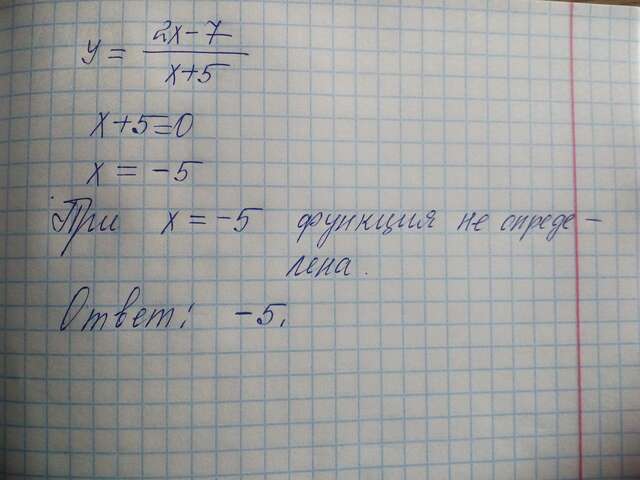 y = 2x-7 / x+5
x+5=0
x = -5
При x = -5 функция не опреде-
лена.
Ответ: -5.